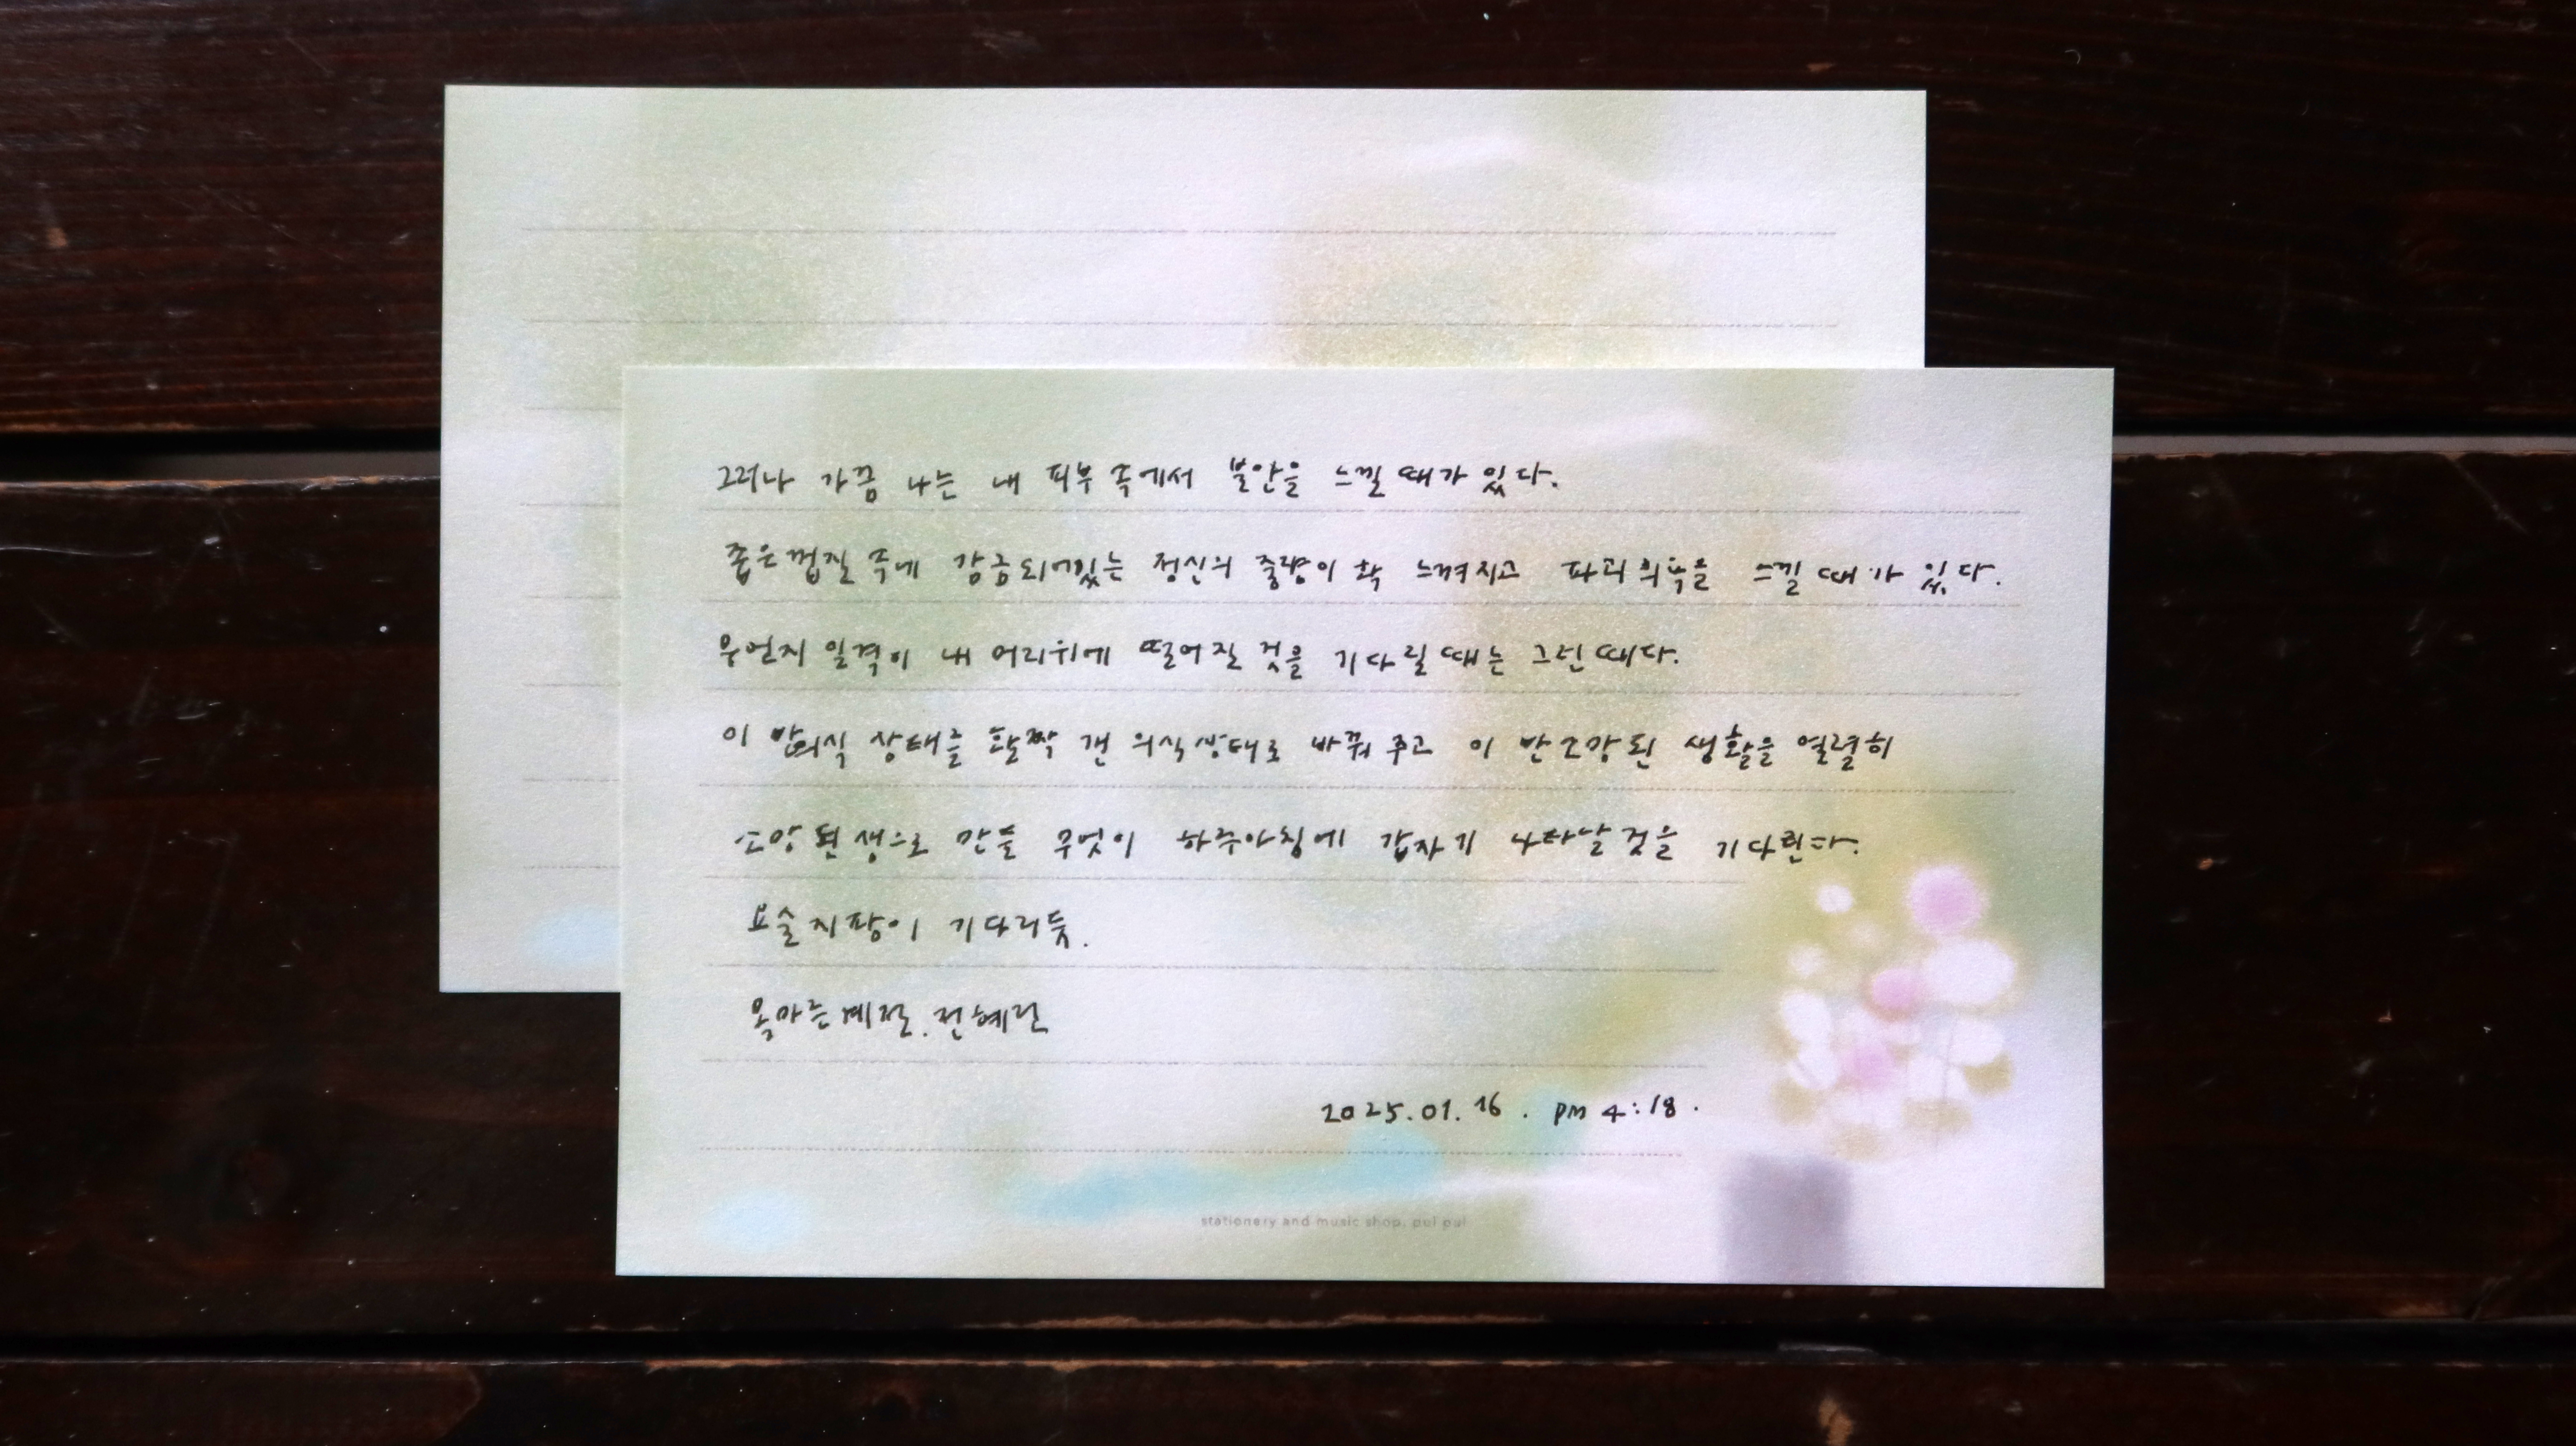 그러나 가끔 나는 내 피부 속에서 불안을 느낄 때가 있다.
좁은 껍질 속에 감금되어있는 정신의 중량이 확 느껴지고 파괴의욕을 느낄 때가 있다.
무언지 일격이 내 머리위에 떨어질 것을 기다릴 때는 그런 때다.
이 반의식 상태를 활짝 갠 의식상태로 바꿔 주고 이 반소망된 생활을 열렬히
소망된 생으로 만들 무엇이 하루아침에 갑자기 나타날 것을 기다린다.
요술 지팡이 기다리듯.
목마른 계절. 전혜린
2025.01.16. PM 4:18.
stationery and music shop, pul pul